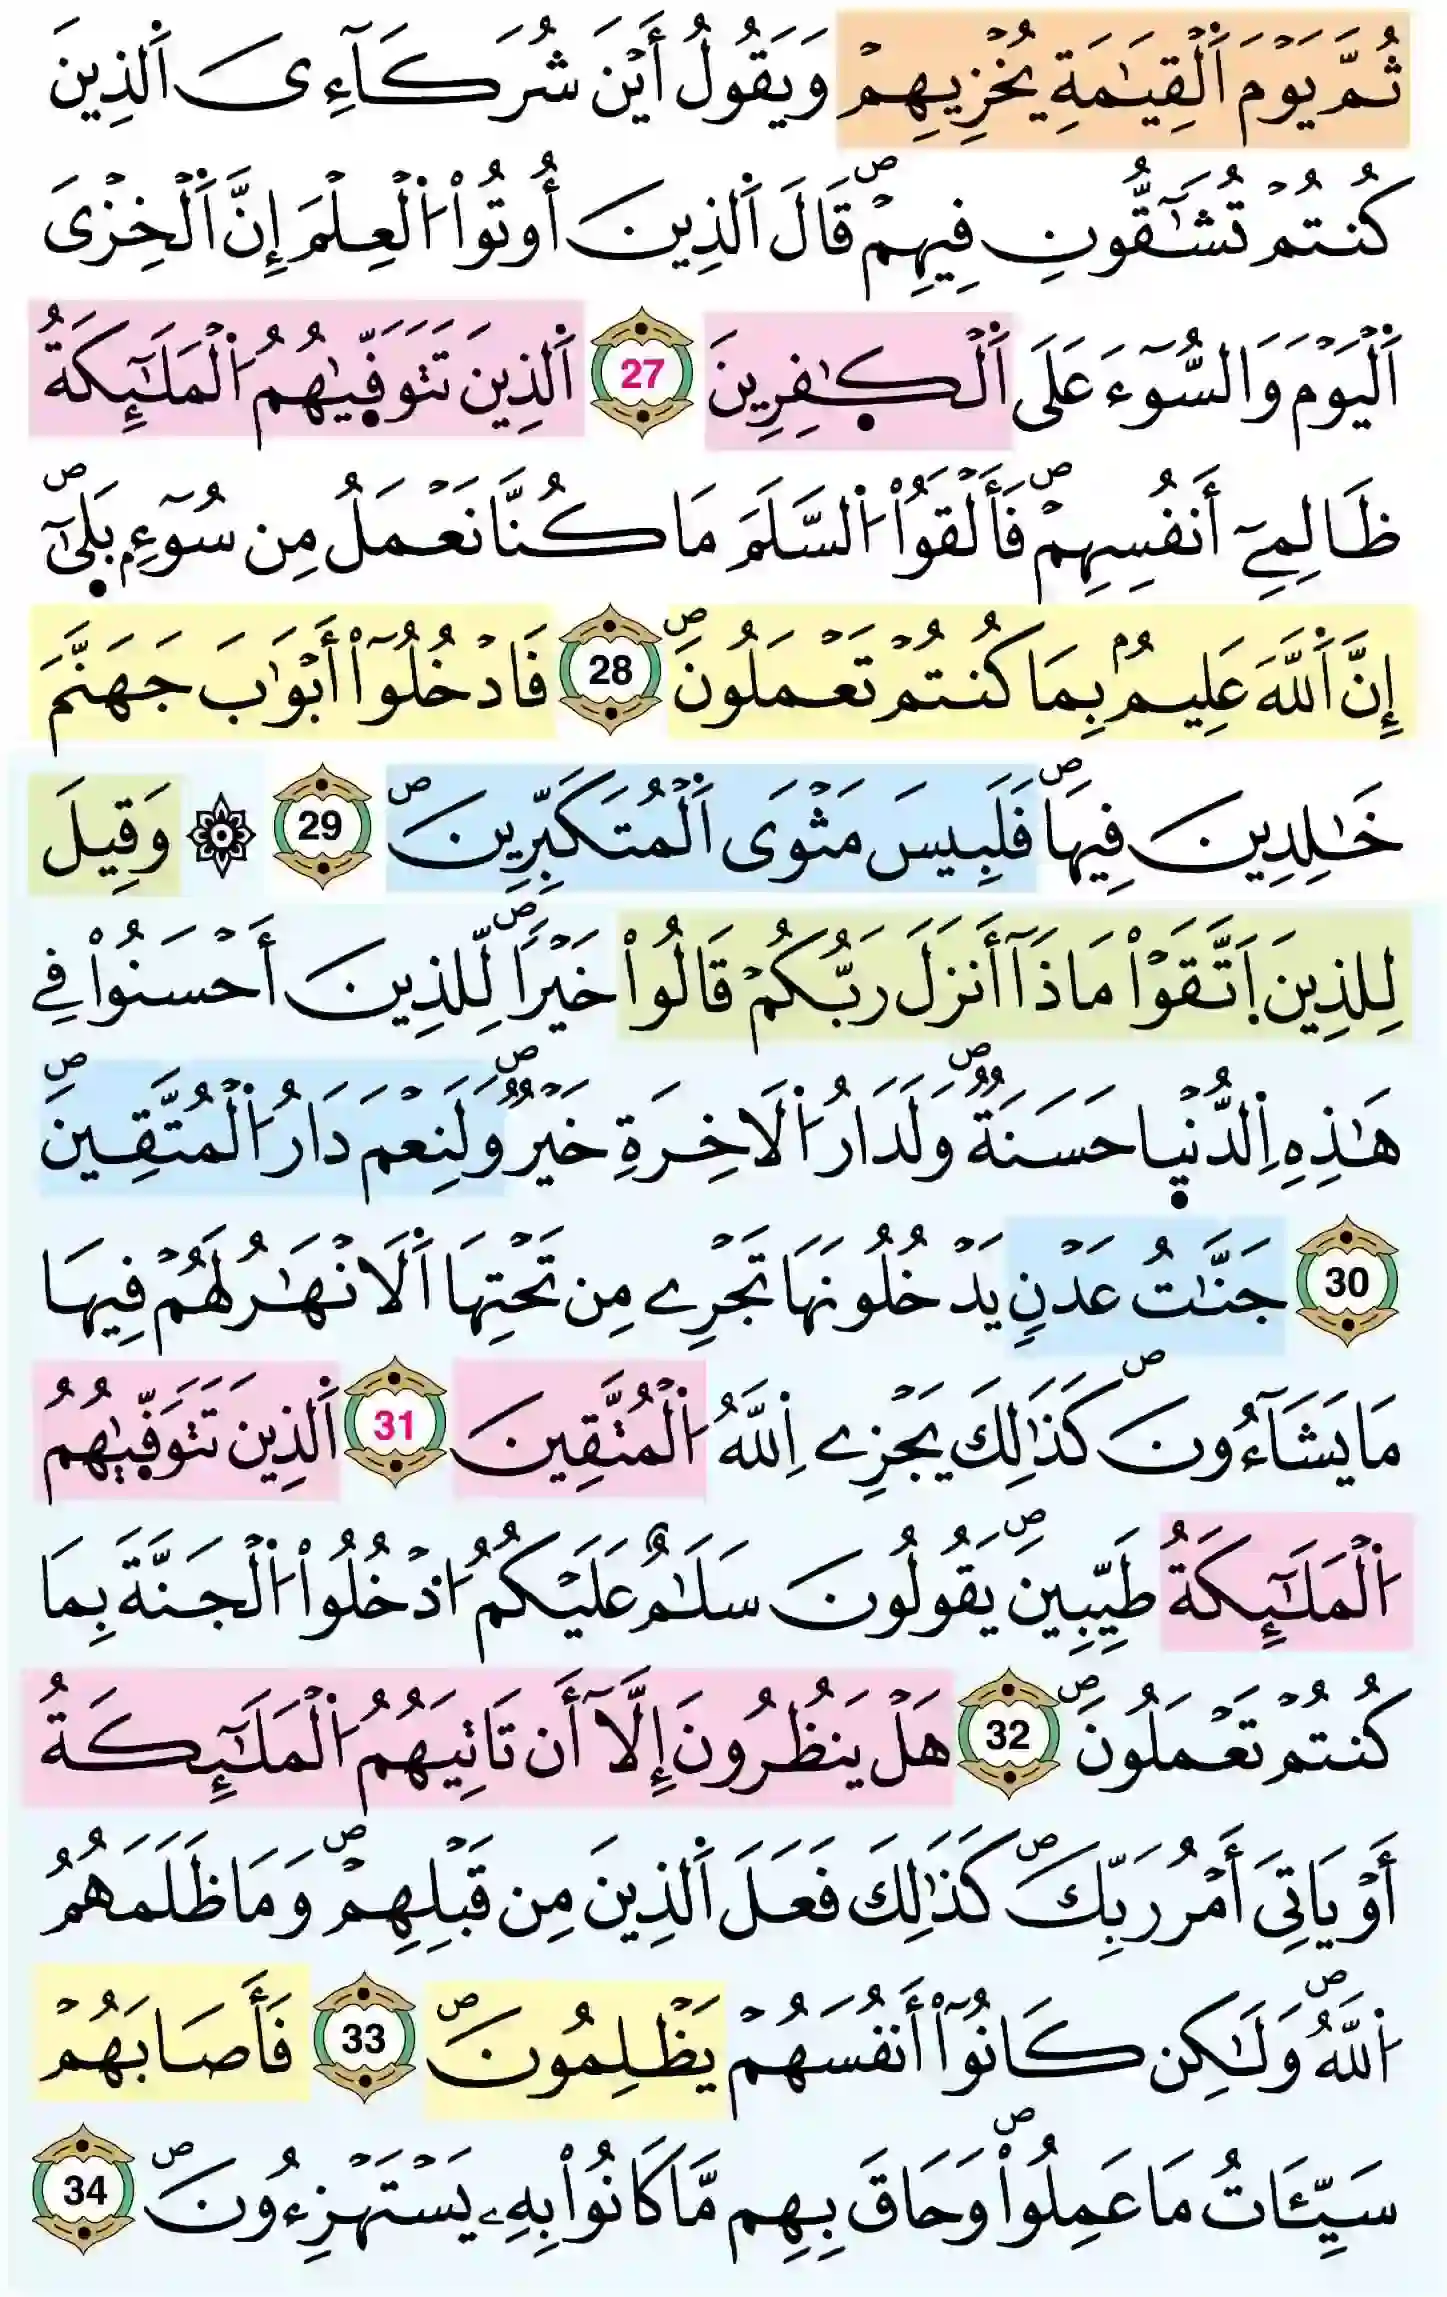 ثُمَّ يَوْمَ اَ۬لْقِيَٰمَةِ يُخْزِيهِمْ وَيَقُولُ أَيْنَ شُرَكَآءِىَ اَ۬لذِينَ
كُنتُمْ تُشَٰٓقُّونِ فِيهِمْۖ قَالَ اَ۬لذِينَ أُوتُواْ اُ۬لْعِلْمَ إِنَّ اَ۬لْخِزْىَ
اَ۬لْيَوْمَ وَالسُّوٓءَ عَلَى اَ۬لْكٰ۪فِرِينَ 27 اَ۬لذِينَ تَتَوَفّ۪يٰهُمُ اُ۬لْمَلَٰٓئِكَةُ
ظَالِمِےٓ أَنفُسِهِمْۖ فَأَلْقَوُاْ اُ۬لسَّلَمَ مَا كُنَّا نَعْمَلُ مِن سُوٓءِۢ بَل۪يٰٓۖ
إِنَّ اَ۬للَّهَ عَلِيمُۢ بِمَا كُنتُمْ تَعْمَلُونَۖ 28 فَادْخُلُوٓاْ أَبْوَٰبَ جَهَنَّمَ
خَٰلِدِينَ فِيهَاۖ فَلَبِيسَ مَثْوَى اَ۬لْمُتَكَبِّرِينَۖ 29 ۞ وَقِيلَ
لِلذِينَ اَ۪تَّقَوْاْ مَاذَآ أَنزَلَ رَبُّكُمْ قَالُواْ خَيْراٗۖ لِّلذِينَ أَحْسَنُواْ فِے
هَٰذِهِ اِ۬لدُّنْي۪ا حَسَنَةٞۖ وَلَدَارُ اُ۬لَاخِرَةِ خَيْرٞۖ وَلَنِعْمَ دَارُ اُ۬لْمُتَّقِينَۖ
30 جَنَّٰتُ عَدْنٖ يَدْخُلُونَهَا تَجْرِے مِن تَحْتِهَا اَ۬لَانْهَٰرُ لَهُمْ فِيهَا
مَا يَشَآءُونَۖ كَذَٰلِكَ يَجْزِے اِ۬للَّهُ اُ۬لْمُتَّقِينَ 31 اَ۬لذِينَ تَتَوَفّ۪يٰهُمُ
اُ۬لْمَلَٰٓئِكَةُ طَيِّبِينَ يَقُولُونَۖ سَلَٰمٌ عَلَيْكُمُ اُ۟دْخُلُواْ اُ۬لْجَنَّةَ بِمَا
كُنتُمْ تَعْمَلُونَۖ 32 هَلْ يَنظُرُونَ إِلَّآ أَن تَاتِيَهُمُ اُ۬لْمَلَٰٓئِكَةُ
أَوْ يَاتِىَ أَمْرُ رَبِّكَۖ كَذَٰلِكَ فَعَلَ اَ۬لذِينَ مِن قَبْلِهِمْۖ وَمَا ظَلَمَهُمُ
اُ۬للَّهُۖ وَلَٰكِن كَانُوٓاْ أَنفُسَهُمْ يَظْلِمُونَۖ 33 فَأَصَابَهُمْ
سَيِّـَٔاتُ مَا عَمِلُواْۖ وَحَاقَ بِهِم مَّا كَانُواْ بِهِۦ يَسْتَهْزِءُونَۖ 34